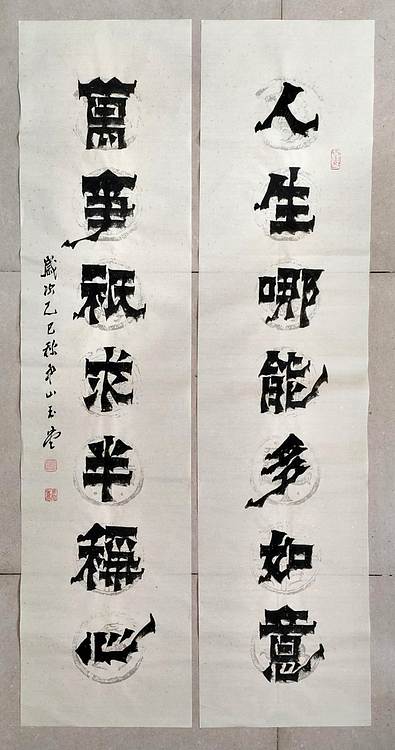 人生哪能多如意
萬事祇求半稱心
歲次乙巳秋
山玉堂